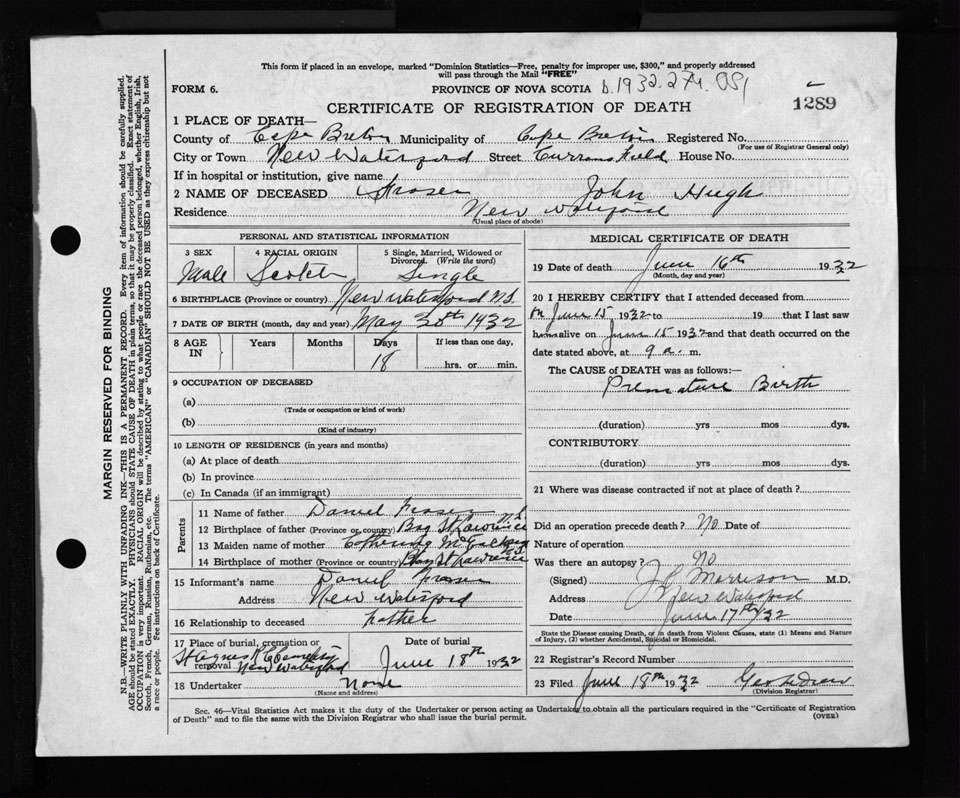 This form if placed in an envelope, marked "Dominion Statistics—Free, penalty for improper use, $300," and properly addressed
will pass through the Mail "FREE"
FORM 6. PROVINCE OF NOVA SCOTIA b.1932.274.081
CERTIFICATE OF REGISTRATION OF DEATH 1289
1 PLACE OF DEATH—
County of Cape Breton Municipality of Cape Breton Registered No.
(For use of Registrar General only)
City or Town New Waterford Street Currans Field House No.
If in hospital or institution, give name
2 NAME OF DECEASED Fraser John Hugh
Residence New Waterford
(Usual place of abode)
PERSONAL AND STATISTICAL INFORMATION
3 SEX 4 RACIAL ORIGIN 5 Single, Married, Widowed or
Divorced. (Write the word)
Male Scotch Single
6 BIRTHPLACE (Province or country) New Waterford N.S.
7 DATE OF BIRTH (month, day and year) May 30th 1932
8 AGE IN Years Months Days If less than one day,
18 hrs. or min.
9 OCCUPATION OF DECEASED
(a)
(Trade or occupation or kind of work)
(b)
(Kind of industry)
10 LENGTH OF RESIDENCE (in years and months)
(a) At place of death
(b) In province
(c) In Canada (if an immigrant)
Parents
11 Name of father Daniel Fraser
12 Birthplace of father (Province or country) Bay St Lawrence N.S.
13 Maiden name of mother
14 Birthplace of mother (Province or country) Bay St Lawrence N.S.
15 Informant's name Daniel Fraser
Address New Waterford
16 Relationship to deceased Father
17 Place of burial, cremation or Date of burial
removal St Agnes R C Cemetery
New Waterford June 18th 1932
18 Undertaker None
(Name and address)
MEDICAL CERTIFICATE OF DEATH
19 Date of death June 16th 1932
(Month, day and year)
20 I HEREBY CERTIFY that I attended deceased from
on June 15 1932 to 19 that I last saw
him alive on June 15 1932 and that death occurred on the
date stated above, at 9 a. m.
The CAUSE of DEATH was as follows:—
Premature Birth
(duration) yrs mos dys.
CONTRIBUTORY
(duration) yrs mos dys.
21 Where was disease contracted if not at place of death?
Did an operation precede death? No Date of
Nature of operation
Was there an autopsy? No
(Signed) Morrison M.D.
Address New Waterford
Date June 17th/32
State the Disease causing Death, or in death from Violent Causes, state (1) Means and Nature
of Injury, (2) whether Accidental, Suicidal or Homicidal.
22 Registrar's Record Number
23 Filed June 18th 1932
(Division Registrar)
Sec. 46—Vital Statistics Act makes it the duty of the Undertaker or person acting as Undertaker to obtain all the particulars required in the "Certificate of Registration
of Death" and to file the same with the Division Registrar who shall issue the burial permit.
(OVER)
MARGIN RESERVED FOR BINDING
N.B.—WRITE PLAINLY WITH UNFADING INK—THIS IS A PERMANENT RECORD. Every item of information should be carefully supplied.
AGE should be stated EXACTLY. PHYSICIANS should STATE CAUSE OF DEATH in plain terms, so that it may be properly classified. Exact statement of
OCCUPATION is very important. RACIAL ORIGIN will be described by stating to what people or race the deceased person belonged, whether English, Irish,
Scotch, French, German, Russian, Ruthenian, etc. The terms "AMERICAN" or "CANADIAN" SHOULD NOT BE USED as they express citizenship but not
a race or people. Fee instructions on back of Certificate.